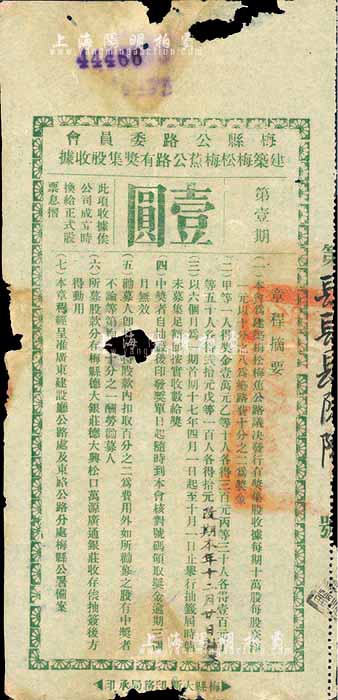 上海陽明拍賣
44466
梅縣公路委員會
建築梅松梅蕉公路有獎集股收據
第壹期
壹圓
此項收據俟
公司成立時
換給正式股
票息摺
章程摘要
(一)本會為建築梅松梅蕉公路議決發行有獎集股收據每期十萬股每股
一元以十分之八為築路費十分之二為獎金
(二)甲等一人得獎金壹萬元乙等十人各得三百元丙等三十人各得壹百
等五十人各得 拾元戊等一百人各得拾元
改期本年十二月廿日
(三)以六個月為一期首期十七年四月一日起至十月一日止舉行抽籤屆時
未募集足額 按實收數給獎
(四)中獎者自抽 後印發獎單日起隨時到本會核對號碼領取獎金逾期三個
月無效
(五)勸募人 股款內扣取百分之二為費用外如所勸募之股有中獎者
不論等第 十分之一酬勞勸募人
(六)所募股款 存梅縣德大銀莊德大興松口萬源廣通銀莊收存俟抽籤後方
得動用
(七)本章程經呈准廣東建設廳公路處及東路公路分處梅縣公署備案
梅縣大新印務局承印
號